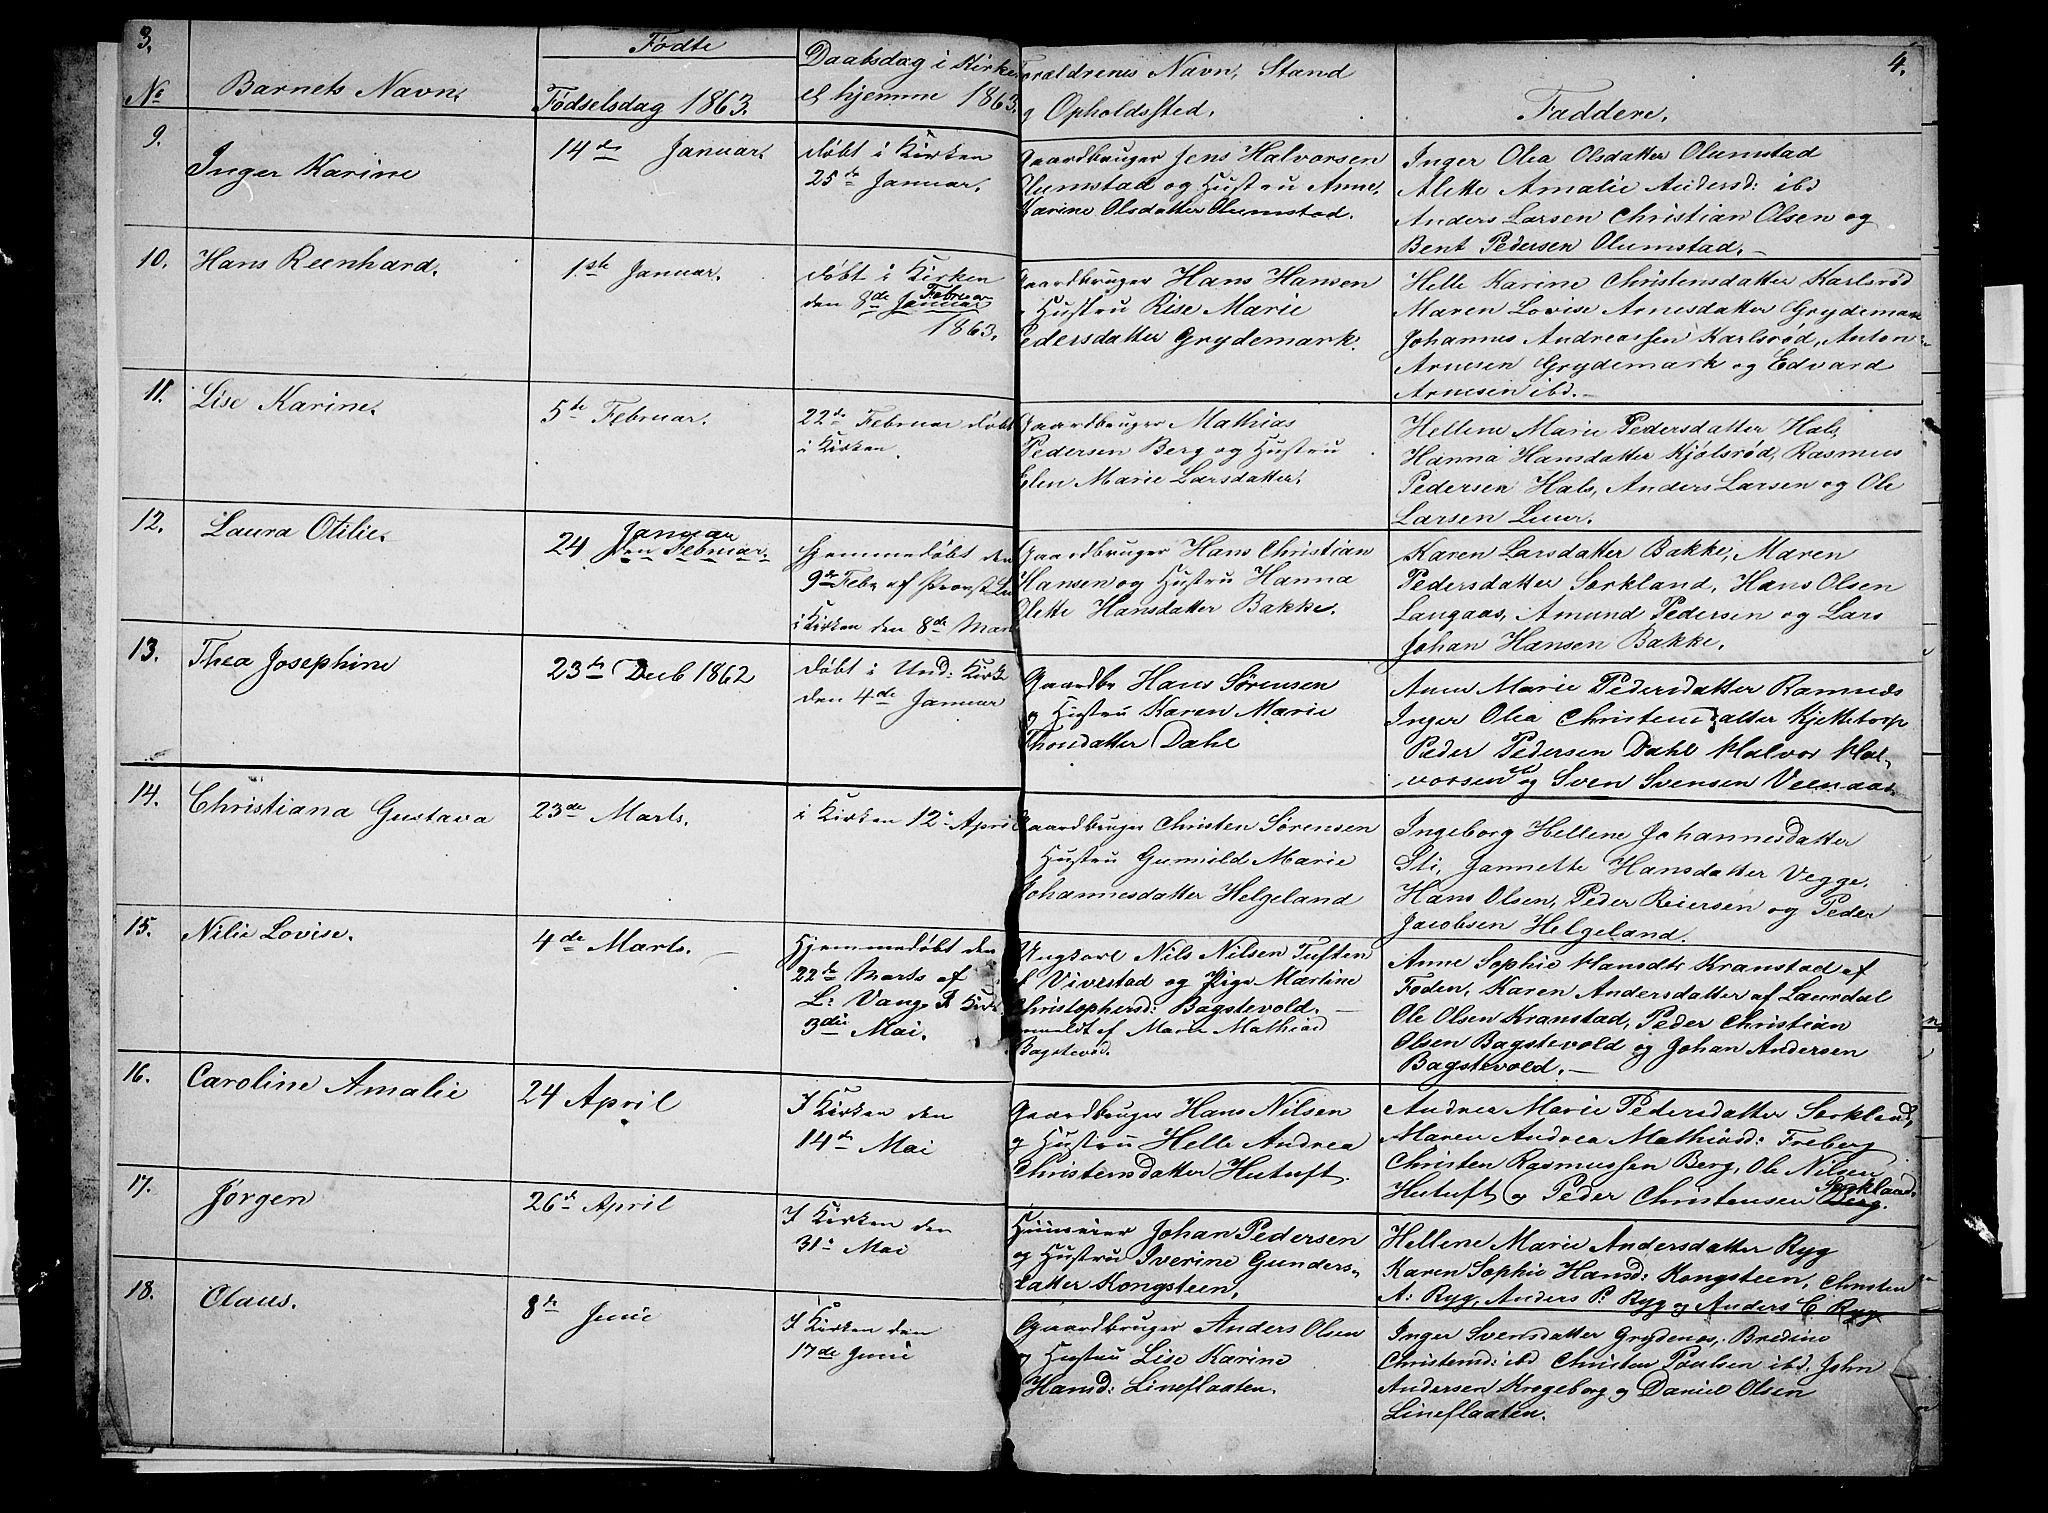 3.
4.
No
Barnets Navn.
Fødte
Fødselsdag 1863.
Daabsdag i Kirke
el hjemme 1863.
Forældrenes Navn, Stand
og Opholdssted.
Faddere.
9.
Inger Karine
14de Januar.
døbt i Kirken
25de Januar.
Gaardbruger Jens Halvorsen
Olumstad og Hustru Anne
Karine Olsdatter Olumstad.
Inger Olea Olsdatter Olumstad
Alette Amalie Andersd: ibd
Anders Larsen Christian Olsen og
Bent Pedersen Olumstad.
10.
Hans Reenhard.
1.ste Januar.
døbt i Kirken
den 8de Januar Februar
1863.
Gaardbruger Hans Hansen
Hustru Rise Marie
Pedersdatter Grydemark.
Helle Karine Christensdatter Karlsrød
Maren Lovise Arnesdatter Grydemark
Johannes Andreassen Karlsrød, Anton
Arnesen Grydemark og Edvard
Arnesen ibd.
11.
Lise Karine.
5te Februar.
22de Februar døbt
i Kirken.
Gaardbruger Mathias
Pedersen Berg og Hustru
Elen Marie Larsdatter.
Hellene Marie Pedersdatter Hals,
Hanna Hansdatter Kjølsrød, Rasmus
Pedersen Hals, Anders Larsen og Ole
Larsen
12.
Laura Otilie.
Januar
24 den Februar.
Hjemmedøbt den
9de Febr af Provst
i Kirken den 8de Marts
Gaardbruger Hans Christian
Hansen og Hustru Hanna
Olette Hansdatter Bakke.
Karen Larsdatter Bakke, Maren
Pedersdatter Serkland, Hans Olsen
Langaas, Amund Pedersen og Lars
Johan Hansen Bakke.
13.
Thea Josephine
23de Decb 1862
døbt i Und: Kirke
den 4de Januar
Gaardbr Hans Sørensen
og Hustru Karen Marie
Thordatter Dahl
Anne Marie Pedersdatter Ramnæs
Inger Olea Christensdatter Kjettetorp
Peder Pedersen Dahl Halvor Hal-
vorsen og Sven Svensen
14.
Christiana Gustava
23de Marts.
i Kirken 12te April
Gaardbruger Christen Sørensen
Hustru Gunnild Marie
Johannesdatter Helgeland
Ingeborg Hellene Johannesdatter
Sti, Jannette Hansdatter Vegge.
Hans Olsen, Peder Reiersen og Peder
Jacobsen Helgeland.
15.
Nilie Lovise.
4de Marts.
Hjemmedøbt den
22de Marts af
L: Vang, I Kirk
3die Mai.
Ungkarl Nils Nilsen Tuften
af Vivestad og Pige Martine
Christophersd: Bagstevold.
anmeldt af Maren Mathisd
Bagstevod.
Anne Sophie Hansdtr Kranstad af
Foden, Karen Andersdatter af Laurdal
Ole Olsen Kranstad, Peder Christian
Olsen Bagstevold og Johan Andersen
Bagstevold.
16.
Caroline Amalie
24 April
I Kirken den
14de Mai
Gaardbruger Hans Nilsen
og Hustru Helle Andrea
Christensdatter Hutuft.
Andrea Marie Pedersdatter Serkland,
Maren Andrea Mathiasd: Freberg
Christen Rasmussen Berg, Ole Nilsen
Hutuft og Peder Christensen Berg. Serkland.
17.
Jørgen
26de April
I Kirken den
31te Mai
Huuseier Johan Pedersen
og Hustru Iverine Gunders-
datter Kongsteen,
Hellene Marie Andersdatter Ryg
Karen Sophie Hansd: Kongsteen, Christen
A: Ryg, Anders P: Ryg og Anders C Ryg
18.
Claus.
8de Juni
I Kirken den
17de Juni
Gaardbruger Anders Olsen
og Hustru Lise Karine
Hansd: Lineflaaten.
Inger Svensdatter Grydenos, Bredine
Christensd: ibd Christen Poulsen ibd. John
Andersen Krogeborg og Daniel Olsen
Lineflaaten.